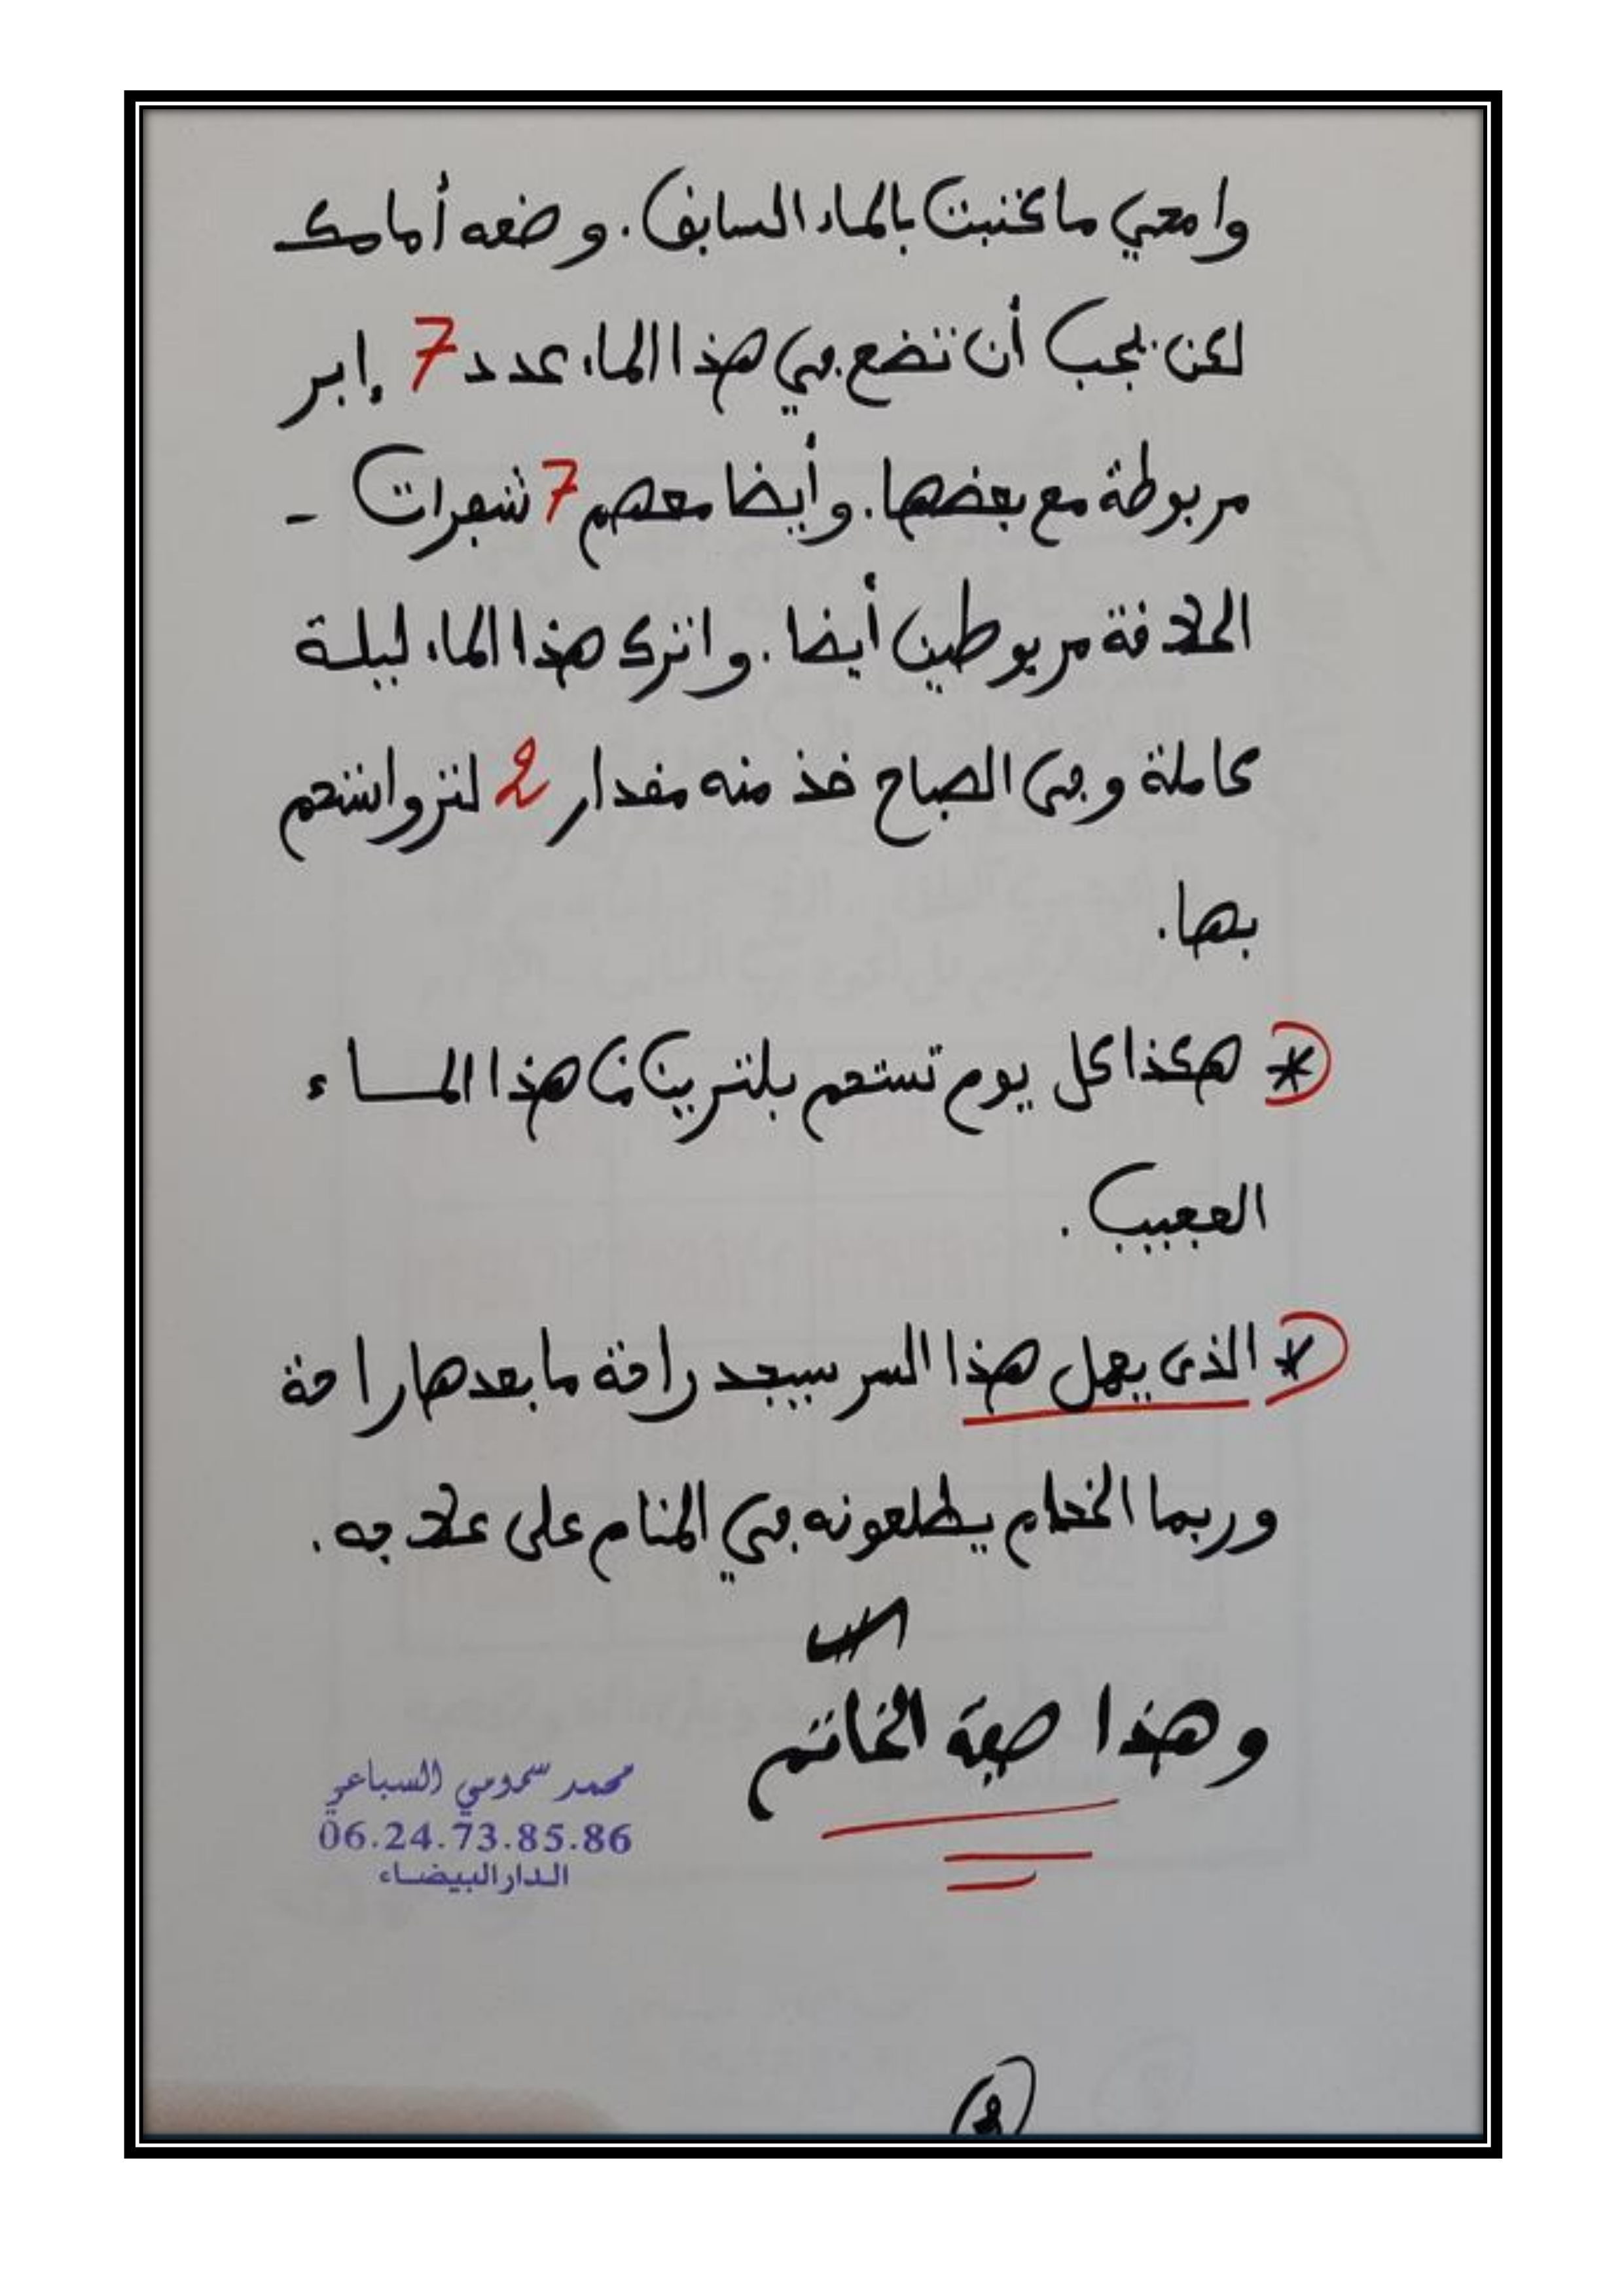 وامحي ما كتبت بالماء السابق. وضعه أمامك
لكن يجب أن تضع في هذا الماء عدد 7 إبر
مربوطة مع بعضها. وأيضا معهم 7 شفرات -
الحلاقة مربوطين أيضا. واترك هذا الماء ليلة
كاملة وفي الصباح خذ منه مقدار 2 لتر واستحم
بها.
* هكذا كل يوم تستحم بلترين من هذا المـــاء
العجيب.
* الذي يعمل هذا السر سيجد راحة ما بعدها راحة
وربما الخدام يطلعونه في المنام على علاجه.
وهذا صفة الخاتم
محمد سمومي السباعي
06.24.73.85.86
الدار البيضاء